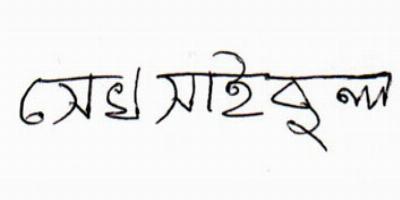 সেখ সাইবুল